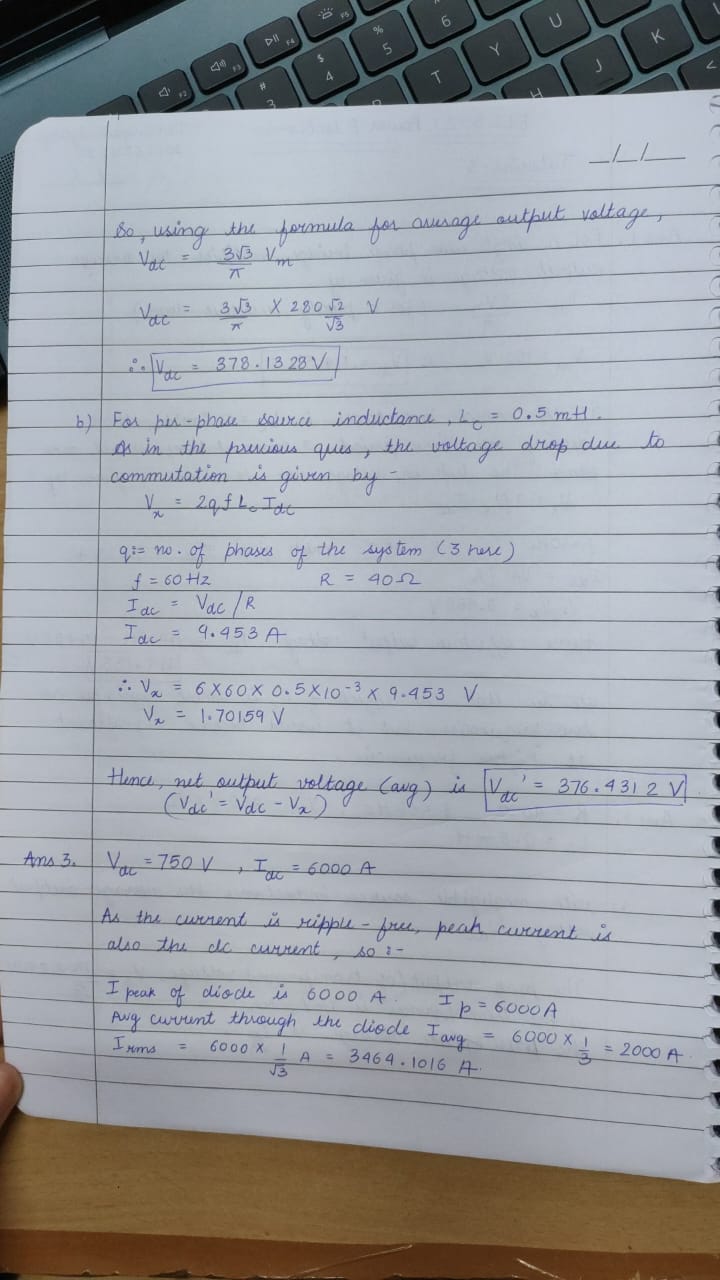 _/_/_
So, using the formula for average output voltage,
Vdc = 3√3/π Vm
Vdc = 3√3/π X 280√2/√3 V
∴ Vdc = 378.1328 V
b) For per-phase source inductance, Lc = 0.5 mH.
As in the previous ques, the voltage drop due to
commutation is given by -
Vx = 2qfLc Idc
q:= no. of phases of the system (3 here)
f = 60 Hz R = 40Ω
Idc = Vdc/R
Idc = 9.453 A
∴ Vx = 6X60X 0.5X10-3 X 9.453 V
Vx = 1.70159 V
Hence, net output voltage (avg) is Vdc' = 376.4312 V
(Vdc' = Vdc - Vx)
Ans 3. Vdc = 750 V , Idc = 6000 A
As the current is ripple-free, peak current is
also the dc current, so :-
I peak of diode is 6000 A. Ip = 6000A
Avg current through the diode Iavg = 6000 X 1/3 = 2000 A.
Irms = 6000 X 1/√3 A = 3464.1016 A.